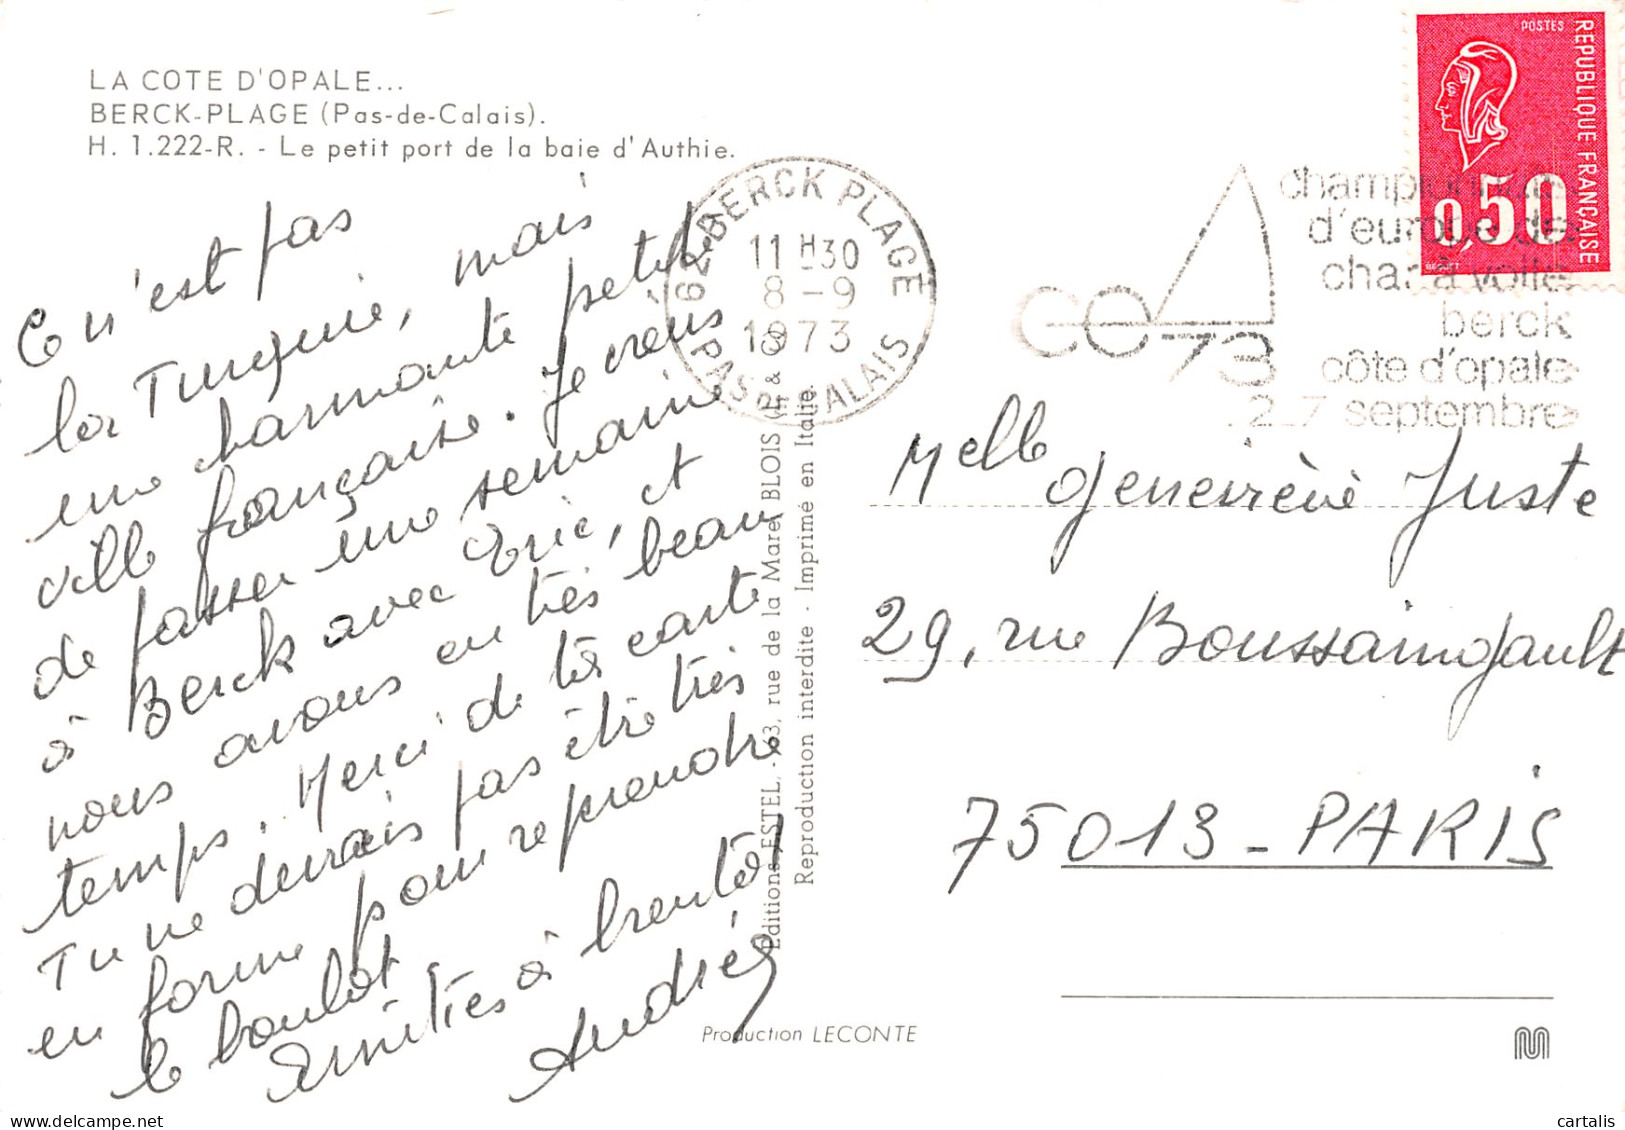 LA COTE D'OPALE...
BERCK-PLAGE (Pas-de-Calais).
H. 1.222-R. - Le petit port de la baie d'Authie.
Ce n'est pas
la Turquie, mais
une charmante petite
ville française. Je viens
de passer une semaine
à Berck avec Eric, et
nous avons eu très beau
temps. Merci de ta carte
Tu ne devrais pas être très
en forme pour reprendre
le boulot.
Amitiés à bientôt
Andrée
62 BERCK PLAGE
11 H 30
8 - 9
1973
PAS DE CALAIS
Editions ESTEL - 63, rue de la Maré BLOIS
Reproduction interdite - Imprimé en Italie
Production LECONTE
POSTES
REPUBLIQUE FRANÇAISE
0,50
BEQUET
championnat
d'europe de
char à voile
berck
côte d'opale
2_7 septembre
73
Melle Geneviève Juste
29, rue Boussaingault
75013 - PARIS
cartalis